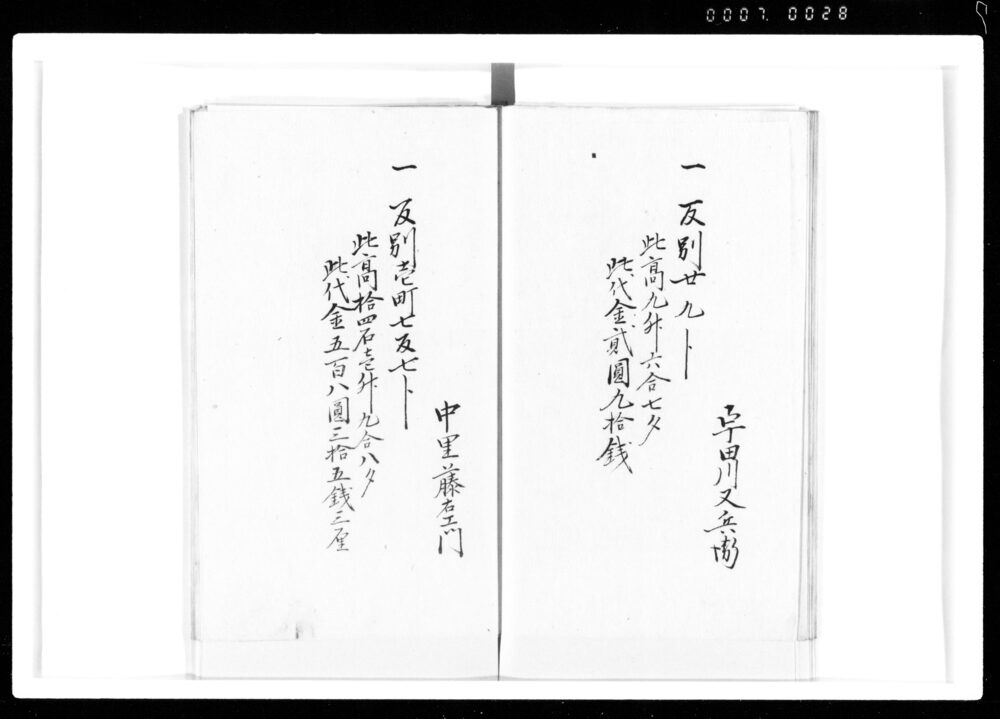 0007. 0028
宇田川又兵衛
一 反別廿九卜
此高九升六合七夕
此代金貳圓九拾銭
中里藤右エ門
一 反別壱町七反七卜
此高拾四石壱升九合八夕
此代金五百八圓三拾五銭三厘